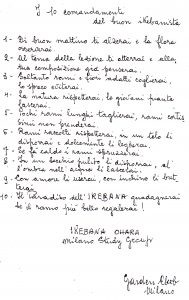 I 10 comandamenti
del buon ikebanista
1- Di buon mattino ti alzerai e la flora
osserverai.
2- Al tema della lezione ti atterrai e alla
tua composizione già penserai.
3- Soltanto rami e fiori adatti coglierai
lo spreco eviterai.
4- La natura rispetterai, le giovani piante
lascerai.
5- Pochi rami lunghi taglierai, rami cortis
simi non prenderai.
6- Rami raccolti rispetterai, in un telo li
disporrai e dolcemente li legherai.
7- Se fa caldo i rami spruzzerai.
8- In un secchio pulito li disporrai, al
l'ombra nell'acqua li lascerai.
9- Con amore li userai, con inchino li but
terai.
10- Il Paradiso dell'IKEBANA guadagnerai
se il ramo più bello regalerai!
IKEBANA OHARA
Milano Study Group
Garden Club
Milano